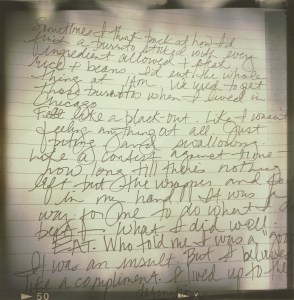 Sometimes I think back at how I'd
fill a burrito stuffed with every
ingredient allowed + steak,
rice + beans. I'd eat the whole
thing at 1AM. We used to get
those burritos when I lived in
Chicago.
Felt like a black-out. Like I wasn't
feeling anything at all. Just
biting and swallowing
like a contest against time -
how long till there's nothing
left but the wrapper and foil
in my hand!! It was a
way for me to do what I do
best. What I did well:
EAT. Who told me I was a "goo
It was an insult. But I believed
like a compliment. I lived up to the
50